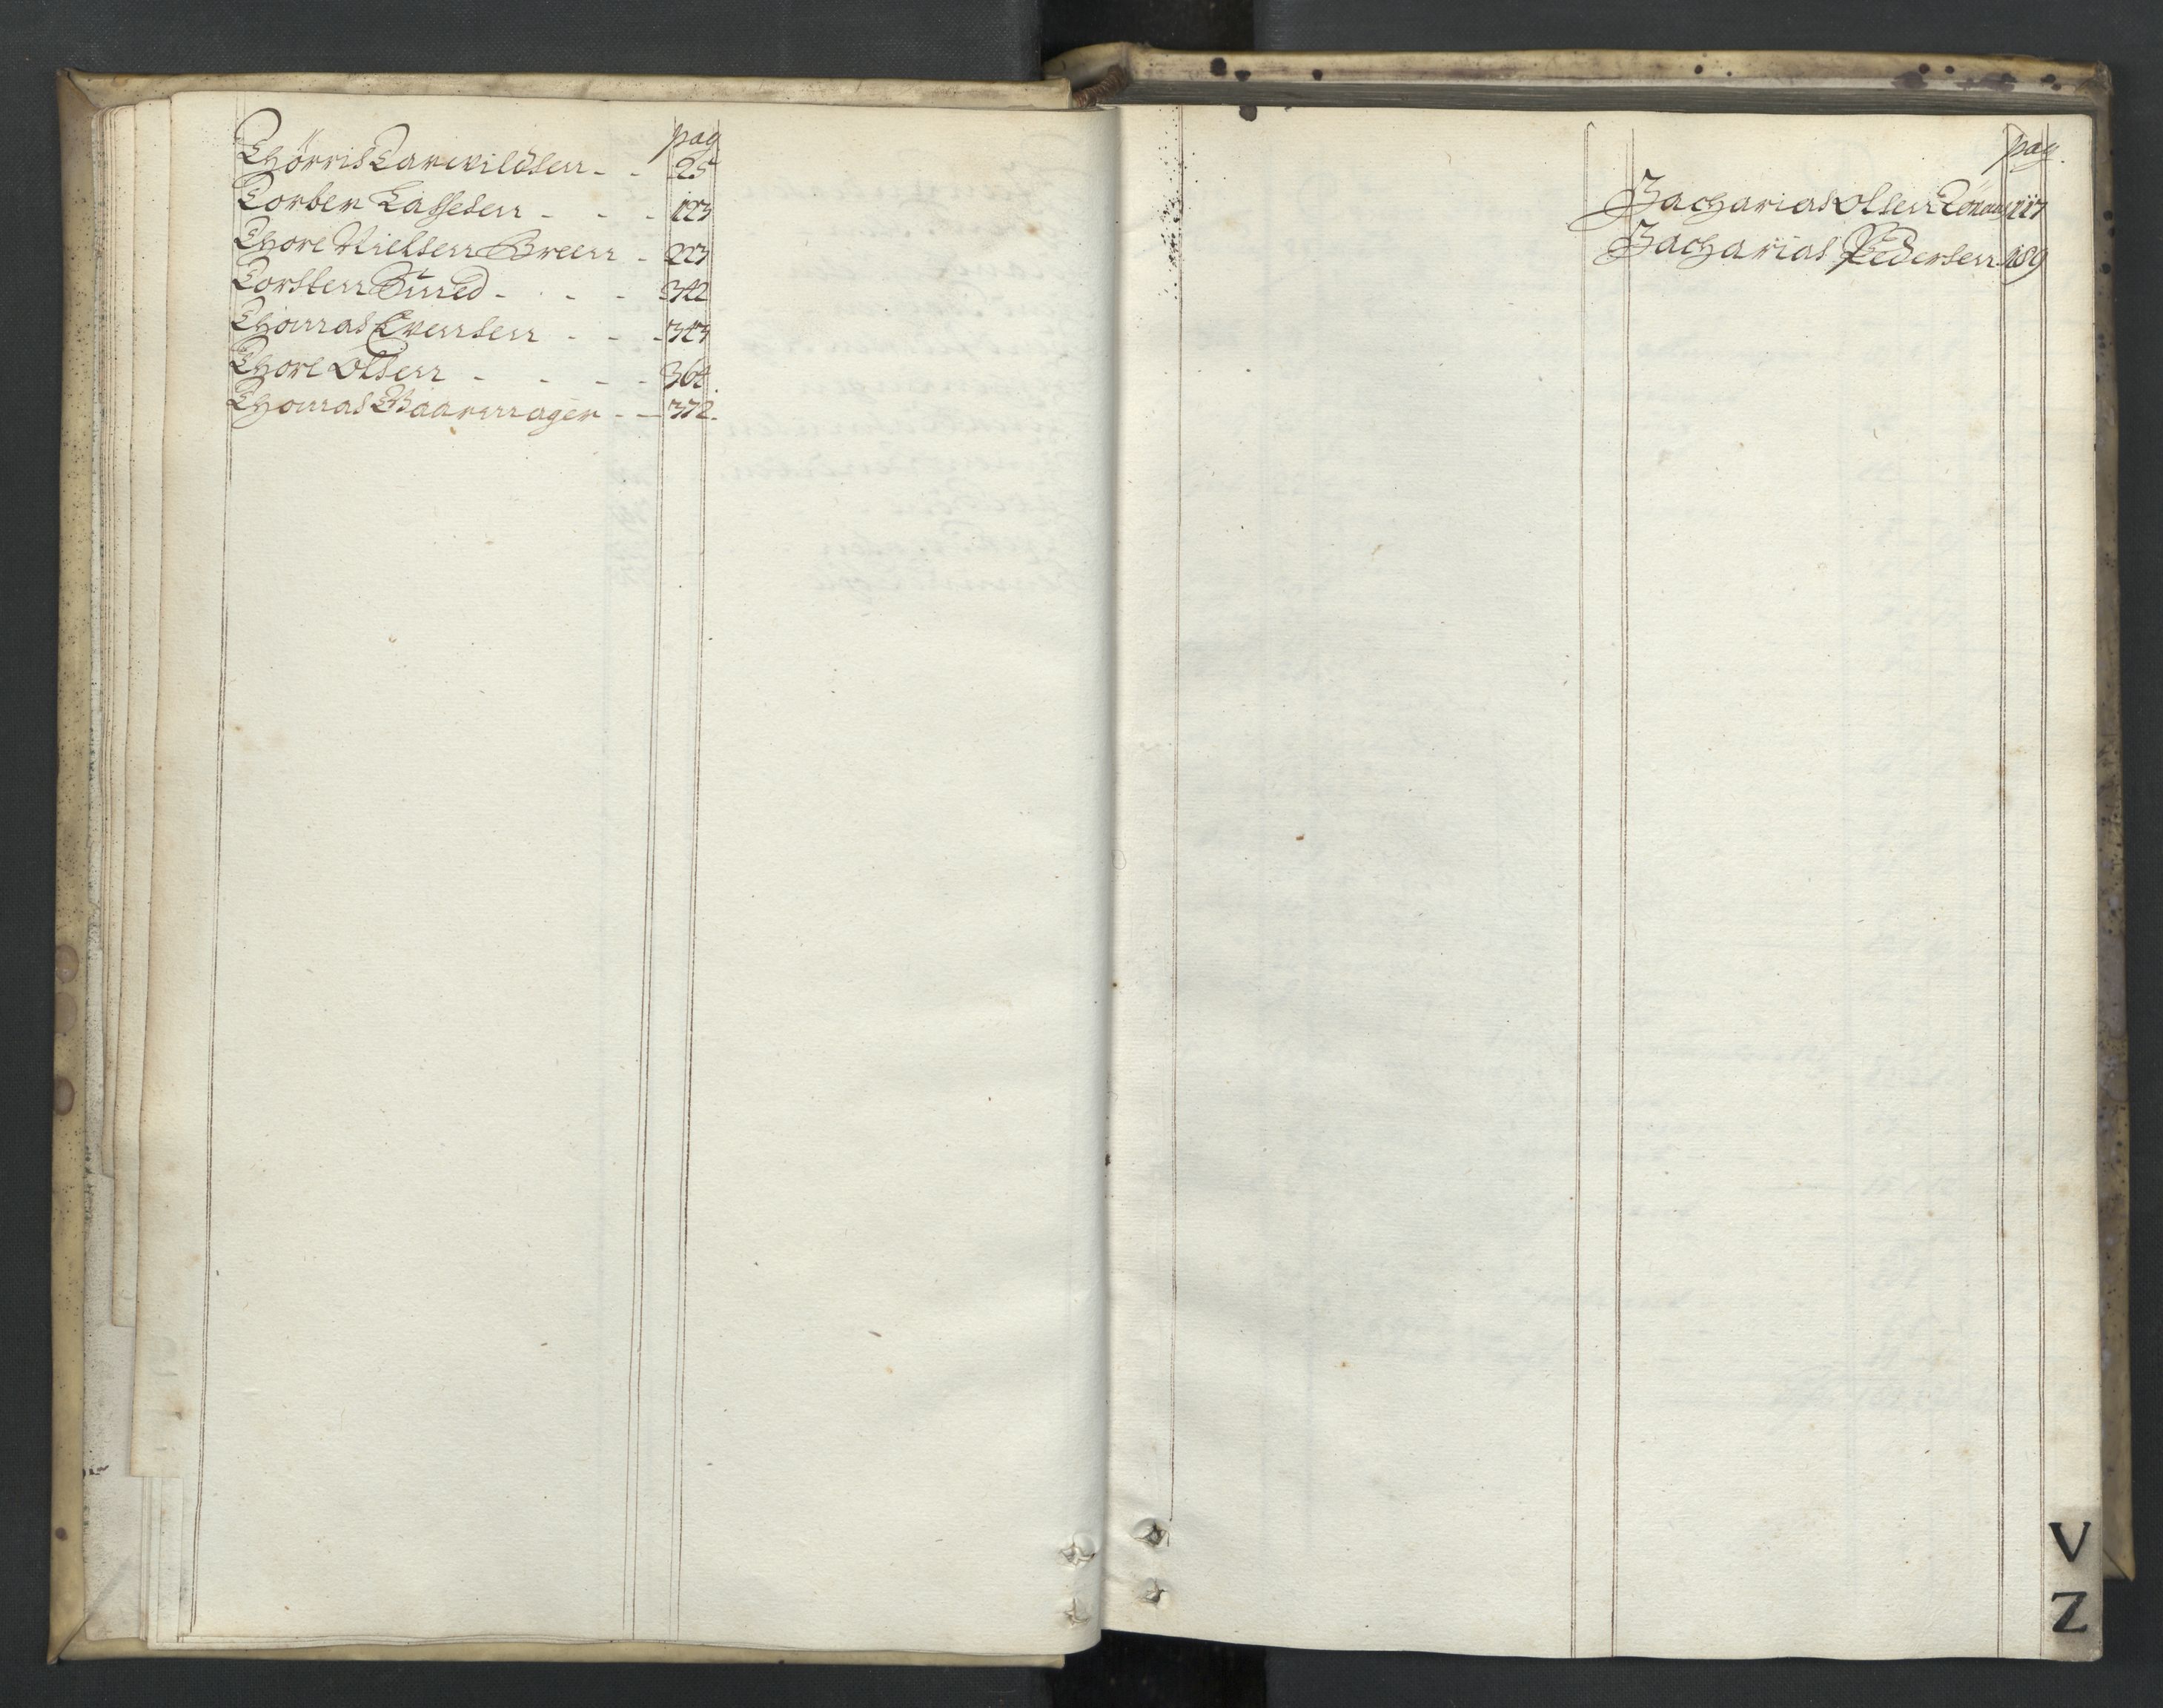 pag
Thörris Tarckildsen - - 25
Torber Lassesen - - - 123
Thore Nielsen Breen - 223
Torsten Smed - - - 342
Thomas Evensen - - - 343
Thore Olsen - - - - 364
Thomas Baarmager - - 372
pag.
Zacharias Olsen 117
Zacharias Pedersen 189
V
Z